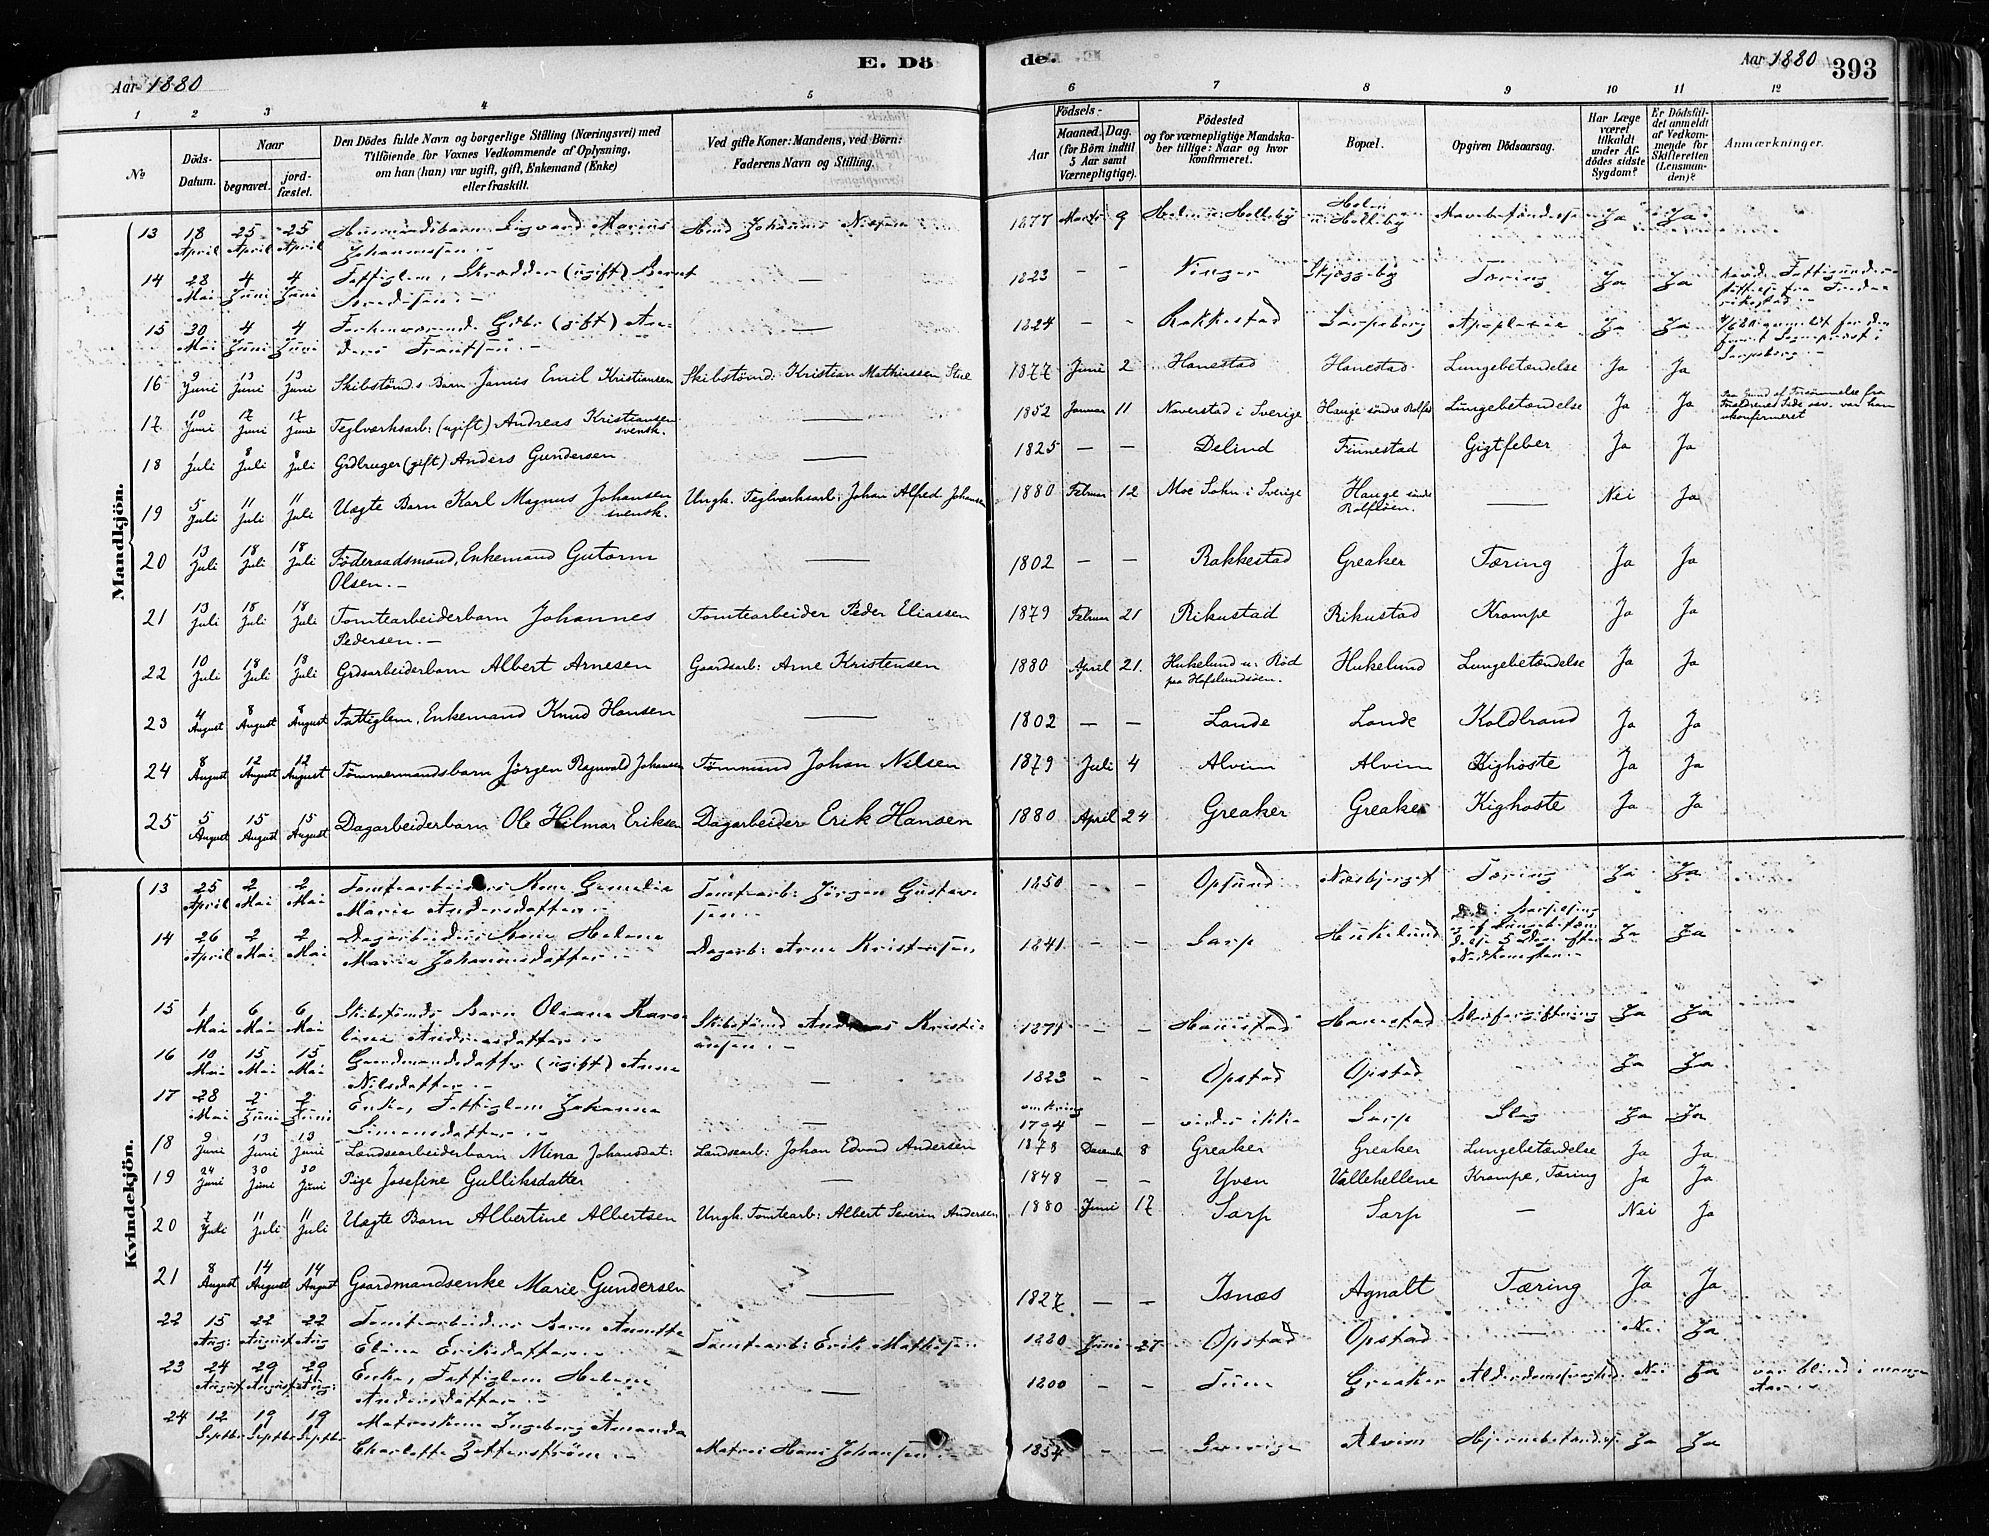 Aar 1880
E. Dö
de.
Aar 1880
393
1 2 3 4 5 6 7 8 9 10 11 12
No
Döds-Datum.
Naar
begravet.
jord-fæstet.
Den Dödes fulde Navn og borgerlige Stilling (Næringsvei) med
Tilföiende for Voxnes Vedkommende af Oplysning,
om han (hun) var ugift, gift, Enkemand (Enke)
eller fraskilt.
Ved gifte Koner: Mandens, ved Börn:
Faderens Navn og Stilling.
Födsels-
Aar
Maaned. Dag.
(for Börn indtil
5 Aar samt
Værnepligtige).
Födested
og for værnepligtige Mandska-
ber tillige: Naar og hvor
konfirmeret.
Bopæl.
Opgiven Dödsaarsag.
Har Læge
været
tilkaldt
under Af-
dödes sidste
Sygdom?
Er Dödsfal-
det anmeldt
af Vedkom-
mende for
Skifteretten
(Lensman-
den)?
Anmærkninger.
Mandkjön.
13 18 April 25 April 25 April Husmandsbarn Sigvard Marius Johannessen Husmd Johannes Nilsen 1877 Marts 9 Holen u. Holleby Holen u. Holleby Mavebetændelse Ja Ja
14 28 Mai 4 Juni 4 Juni Fattiglem, Skrædder (ugift) Bernt — 1823 — — Vinger Skjøggeby Tæring Ja Ja
15 30 Mai 4 Juni 4 Juni Forhenværende Gdbr (gift) Anders Frantsen — 1824 — — Rakkestad Sarpsborg Apoplexie Ja Ja
16 9 Juni 13 Juni 13 Juni Skibstømds Barn Janus Emil Kristiansen Skibstømd: Kristian Mathiassen Stue 1877 Juni 2 Hanestad Hanestad Lungebetændelse Ja Ja
17 10 Juni 17 Juni 17 Juni Teglværksarb: (ugift) Andreas Kristiansen svensk. — 1852 Januar 11 Naverstad i Sverige Hauge søndre Rolfsø Lungebetændelse Ja Ja Paa Grund af Forsømmelse fra Forældrenes Side var han ukonfirmeret
18 1 Juli 8 Juli 8 Juli Grdbruger (gift) Anders Gundersen — 1825 — — Delind Finnestad Gigtfeber Ja Ja
19 5 Juli 11 Juli 11 Juli Uægte Barn Karl Magnus Johansen svensk. Ungk. Teglværksarb: Johan Alfred Johansen 1880 Februar 12 Moe Sokn i Sverige Hauge søndre Rolfsøen. — Nei Ja
20 13 Juli 18 Juli 18 Juli Føderaadsmand, Enkemand Gutorm Olsen.— — 1802 — — Rakkestad Greaker Tæring Ja Ja
21 13 Juli 18 Juli 18 Juli Tomtearbeiderbarn Johannes Pedersen.— Tomtearbeider Peder Eliassen 1879 Februar 21 Rikustad Rikustad Krampe Ja Ja
22 10 Juli 18 Juli 18 Juli Grdsarbeiderbarn Albert Arnesen Gaardsarb: Arne Kristensen 1880 April 21. Hukelund u: Rød paa Hafslundsøen. Hukelund Lungebetændelse Ja Ja
23 4 August 8 August 8 August Fattiglem, Enkemand Knud Hansen — 1802 — — Lande Lande Koldbrand Ja Ja
24 8 August 12 August 12 August Tømmermandsbarn Jörgen Ragnvald Johansen Tømmmd Johan Nilsen 1879 Juli 4 Alvim Alvim Kighoste Ja Ja
25 5 August 15 August 15 August Dagarbeiderbarn Ole Hilmar Eriksen Dagarbeider Erik Hansen 1880 April 24 Greaker Greaker Kighoste Ja Ja
Kvindekjön.
13 25 April 2 Mai 2 Mai Tomtearbeiders Kone Marie Andersdatter Tomtearb: Jørgen Gustavsen 1850 — — Opsund Tæring Ja Ja
14 26 April 2 Mai 2 Mai Dagarbeiders Kone Helene Marie Johannesdatter Dagarb: Arne Kristensen 1841 — — Sarp Hukelund Ja Ja
15 1 Mai 6 Mai 6 Mai Skibstømds Barn Oliane Karoline Andreasdatter Skibstømd Andreas Kristiansen 1871 — — Hanestad Hanestad Blodforgiftning Ja Ja
16 10 Mai 15 Mai 15 Mai Gaardmandsdatter (ugift) Anne Nilsdatter — 1823 — — Opstad Opstad Ja Ja
17 28 Mai 2 Juni 2 Juni Enke, Fattiglem Johanne Simensdatter — omkring 1794 — — vides ikke Sarp Slag Ja Ja
18 9 Juni 13 Juni 13 Juni Landsearbeiderbarn Mina Johansdat: Landsearb: Johan Edvard Andersen 1878 December 8 Greaker Greaker Lungebetændelse Ja Ja
19 24 Juni 30 Juni 30 Juni Pige Josefine Gulliksdatter — 1848 — — Yven Vallehellene Krampe, Tæring Ja Ja
20 7 Juli 11 Juli 11 Juli Uægte Barn Albertine Albertsen Ungk. Tomtearb: Albert Severin Andersen 1880 Juni 17 Sarp Sarp — Nei Ja
21 8 August 14 August 14 August Gaardmandsenke Marie Gundersen — 1827 — — Isnæs Agnalt Tæring Ja Ja
22 15 Aug: 22 August 22 Aug Tomtearbeiders Barn Anette Eline Eriksdatter Tomtearb: Erik Mathisen 1880 Juni 27 Opstad Opstad — Nei Ja
23 24 August 29 August 29 Aug: Enke, Fattiglem Helene Andersdatter — 1800 — — Tune Greaker Alderdomssvaghed. Nei Ja var blind i mange Aar
24 12 Septbr 19 Septbr 19 Septbr Matroskone Ingeborg Amanda Charlotte Zetterstrøm Matros Hans Johansen 1854 — — Sverige Alvim Hjernebetændelse Ja Ja